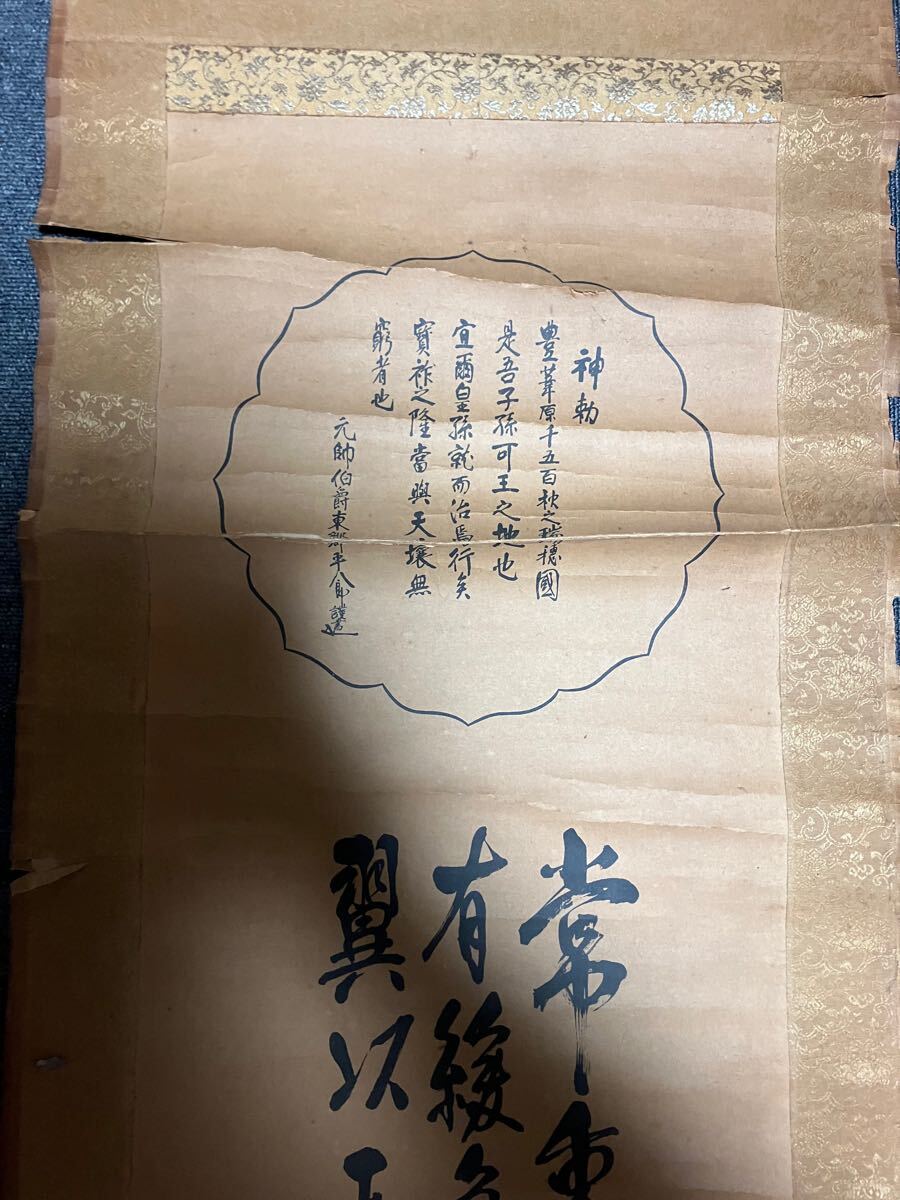 神勅
豊葦原千五百秋之瑞穂國
是吾子孫可王之地也
宜爾皇孫就而治焉行矣
寶祚之隆當與天壤無
窮者也
元帥伯爵東郷平八郎謹書
常
有緩急
翼以